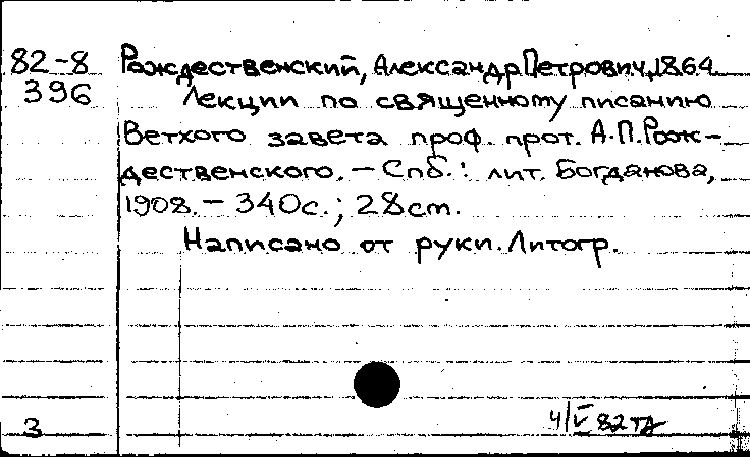 82-8 Рождественский, Александр Петрович, 1864
396 Лекции по священному писанию
Ветхого завета проф. прот. А.П.Рож-
дественского. – Спб.: лит. Богданова,
1908. – 340с.; 28см.
Написано от руки. Литогр.
3
4/V 82